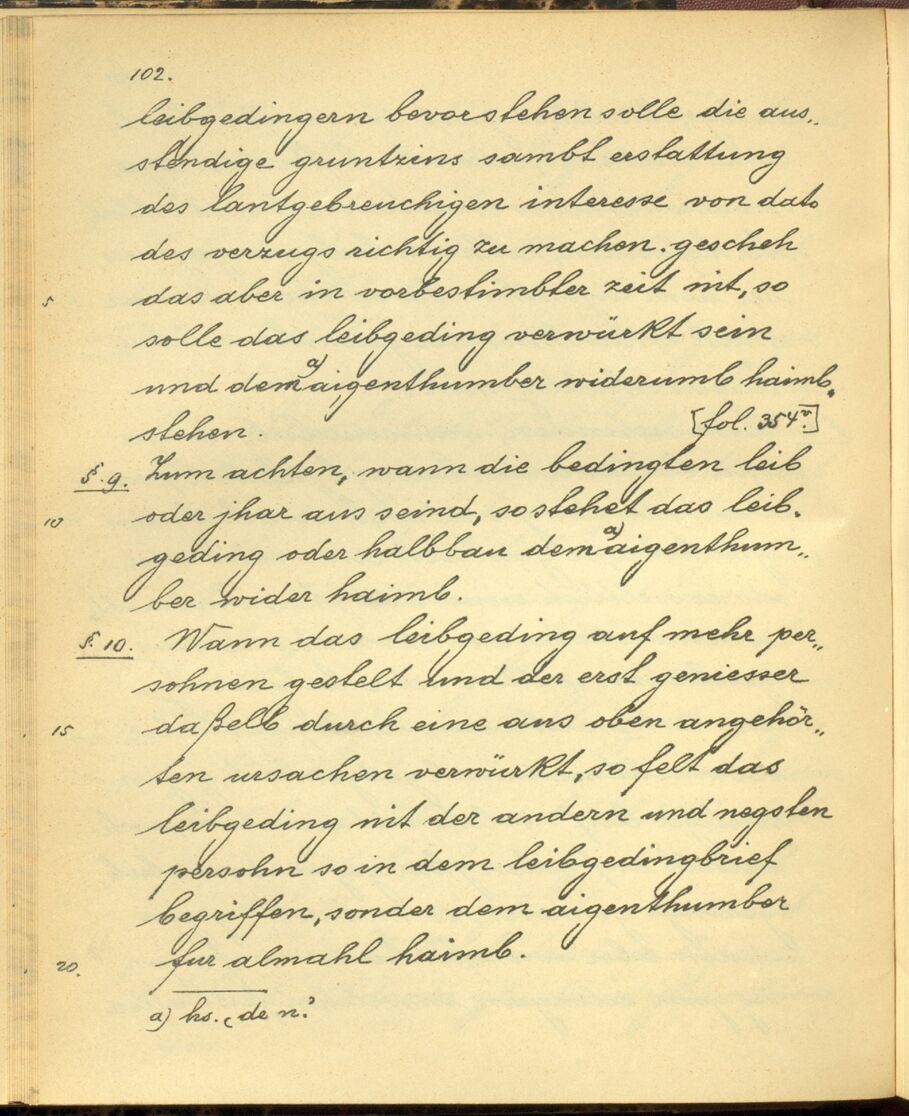 102.
leibgedingern bevorstehen solle die aus„
stendige gruntzins sambt erstattung
des lantgebreuchigen interesse von dato
des verzugs richtig zu machen. gescheh
5 das aber in vorbestimbter zeit nit, so
solle das leibgeding verwürkt sein
und dem a) aigenthumber widerumb haimb„
stehen. [fol. 354v.]
§. 9. Zum achten, wann die bedingten leib
10 oder jhar aus seind, so stehet das leib„
geding oder halbbau dem a) aigenthum„
ber wider haimb.
§. 10. Wann das leibgeding auf mehr per„
sohnen gestelt und der erst geniesser
15 daßelb durch eine aus oben angehör„
ten ursachen verwürkt, so felt das
leibgeding nit der andern und negsten
persohn so in dem leibgedingbrief
begriffen, sonder dem aigenthumber
20. fur almahl haimb.
a) hs. „den“